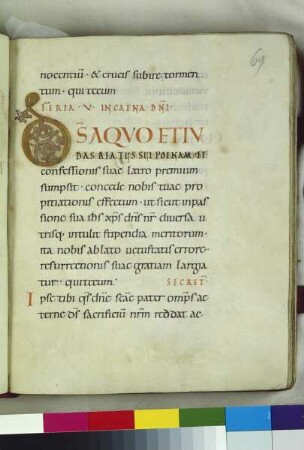 69
nocentiū · & crucis subire tormen
tum · qui tecum
FERIA · V · IN CAENA DN̄I ·
DS̄ A QUO ET IU
DAS REATUS SUI POENAM · ET
confessionis suae latro premium
sumpsit · concede nobis tuae pro
pitiationis effectum · ut sicut in pas
sione sua ih̄s xp̄s dn̄s nr̄ diversa u
trisq; intulit stipendia meritorum ·
ita nobis ablato uetustatis errore ·
resurrectionis suae gratiam largia
tur · qui tecum · SECRET̄
Ipse tibi qs̄ dn̄e sc̄e pater omp̄s ae
terne ds̄ sacrificiū nr̄m reddat ac